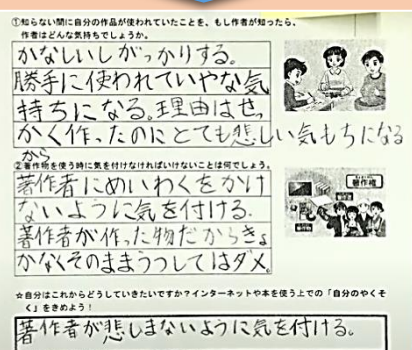 ①知らない間に自分の作品が使われていたことを、もし作者が知ったら、
作者はどんな気持ちでしょうか。
かなしいしがっかりする。
勝手に使われていていやな気
持ちになる。理由はせっ
かく作ったのにとても悲しい気もちになる
から
②著作物を使う時に気を付けなければいけないことは何でしょう。
著作者にめいわくをかけ
ないように気を付ける.
著作者が作った物だからきょ
かなくそのままうつしてはダメ。
著作権
☆自分はこれからどうしていきたいですか?インターネットや本を使う上での「自分のやくそ
く」をきめよう!
著作者が悲しまないように気を付ける。